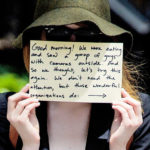 Good morning! We were eating
and saw a group of guys
with cameras outside. And
so we thought, let's try this
again. We don't need the
attention, but these wonderful
organizations do: →